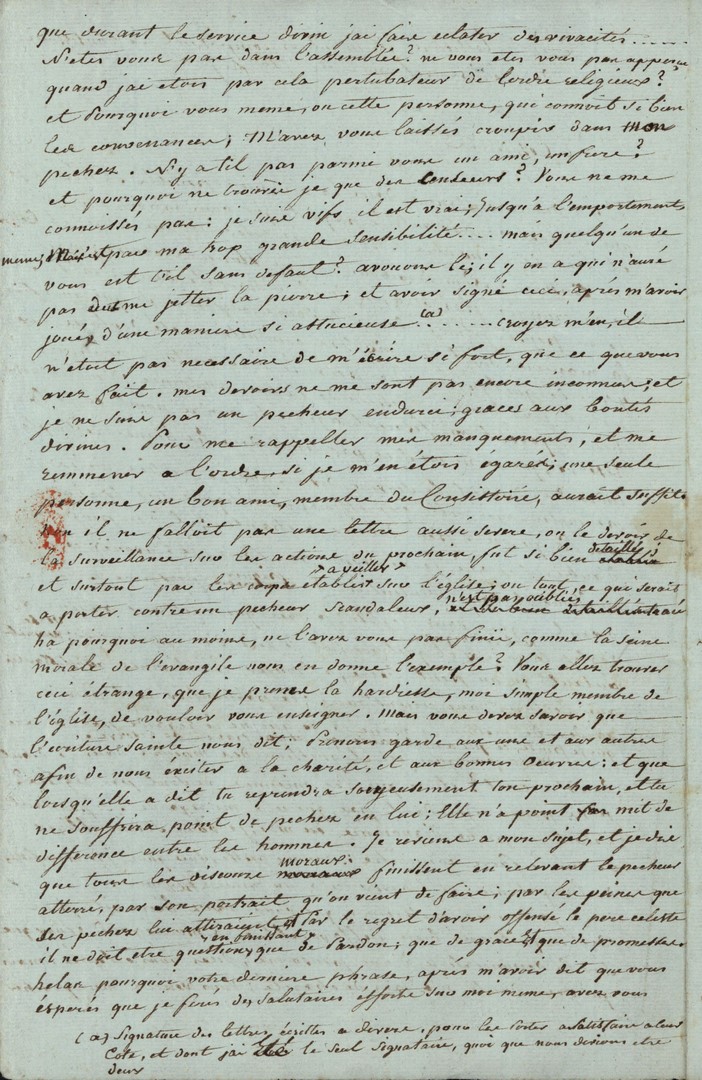 que durant le service divin jai faire eclater des vivacités ......
N'etes vous pas dans l'assemblée? ne vous etes vous pas apperçu
quand jai etois par cela pertubateur de l'ordre religieux?
et Pourquoi vous meme, ou cette personne, qui connoit si bien
les convenances; M'avez vous laissés croupir dans mon
pechez. N'y a til pas parmi vous un ami, un frere?
et pourquoi ne trouvée je que des censeurs? Vous ne me
connoisses pas; je suis vifs il est vrai; jusqu'a l'emportements
meme; Mais c'est par ma trop grande sensibilité .... mais quelqu'un de
vous est t'il sans defaut? avouons le; il y en a qui n'auré
pas dut me jetter la pierre; et avoir signé ceci, après m'avoir
jouéz d'une maniere si astucieuse (a) ...... croyez m'en, il
n'etoit pas necessaire de m'écrire si fort, que ce que vous
avez fait. mes devoirs ne me sont pas encore inconnus; et
je ne suis pas un pecheur endurci; graces aux bontés
divines. Pour me rappeller mes manquements, et me
remmener a l'ordre, si je m'en étois égarés; une seule
personne, un bon ami, membre du Consistoire, auroit suffit.
non il ne falloit pas une lettre aussi severe, ou le devoir de
la surveillance sur les actions du prochain, fut si bien detaillés
et surtout par les corps établist a veiller sur l'église; ou tout ce qui serait
a porter contre un pecheur scandaleux, n'est pas oubliés
ha pourquoi au moins, ne l'avez vous pas finie, comme la saine
morale de l'evangile nous en donne l'exemple? Vous allez trouver
ceci étrange, que je prenne la hardiesse, moi simple membre de
l'église, de vouloir vous enseigner. Mais vous devez savoir que
l'ecriture sainte nous dit; Prenons garde aux uns et aux autres
afin de nous éxciter a la charité, et aux bonnes oeuvres; et que
lorsqu'elle a dit tu reprendra soigneusement ton prochain, et tu
ne souffrira point de pechez en lui; Elle n'a point mit de
difference entre les hommes. Je reviens a mon sujet, et je dis
que tous les discours moraux finissent en relevant le pecheur
atterré, par son portrait qu'on vient de faire; par les peines que
ses pechez lui attiraient et Par le regret d'avoir offensé le pere celeste
il ne doit etre question en finissant que de Pardon; que de grace et que de promesse.
helas pourquoi votre derniere phrase, après m'avoir dit que vous
espérés que je ferés des salutaires éfforts sur moi meme, avez vous
(a) Signature des lettres écrittes a divers, pour les porter a Satisfaire a leur
Cote, et dont jai été le seul Signataire, quoi que nous devions etre
deux